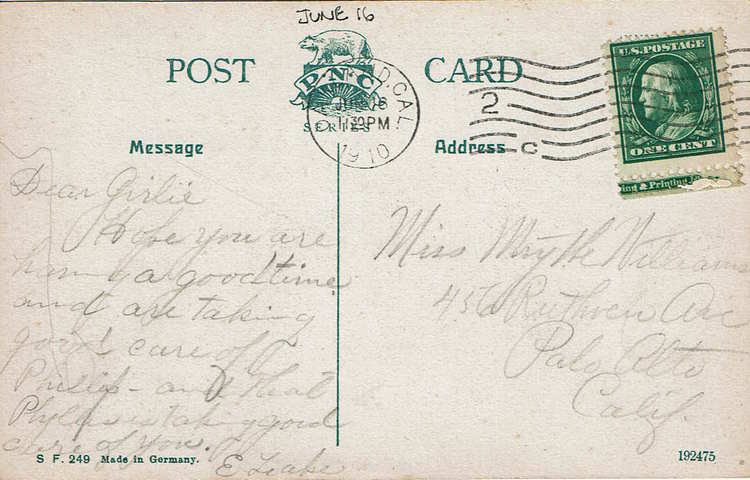 JUNE 16
POST CARD
P.N.C.
SERIES
D. CAL.
1 30 PM
1910
2
C
U.S. POSTAGE
ONE CENT
ing & Printing
Message
Address
Dear Girlie
Hope you are
having a good time
and are taking
good care of
Philip - and that
Phyllis is taking good
care of you.
E Leake
Miss Myrtle Williams
456 Ruthven Ave
Palo Alto
Calif.
S F. 249 Made in Germany.
192475